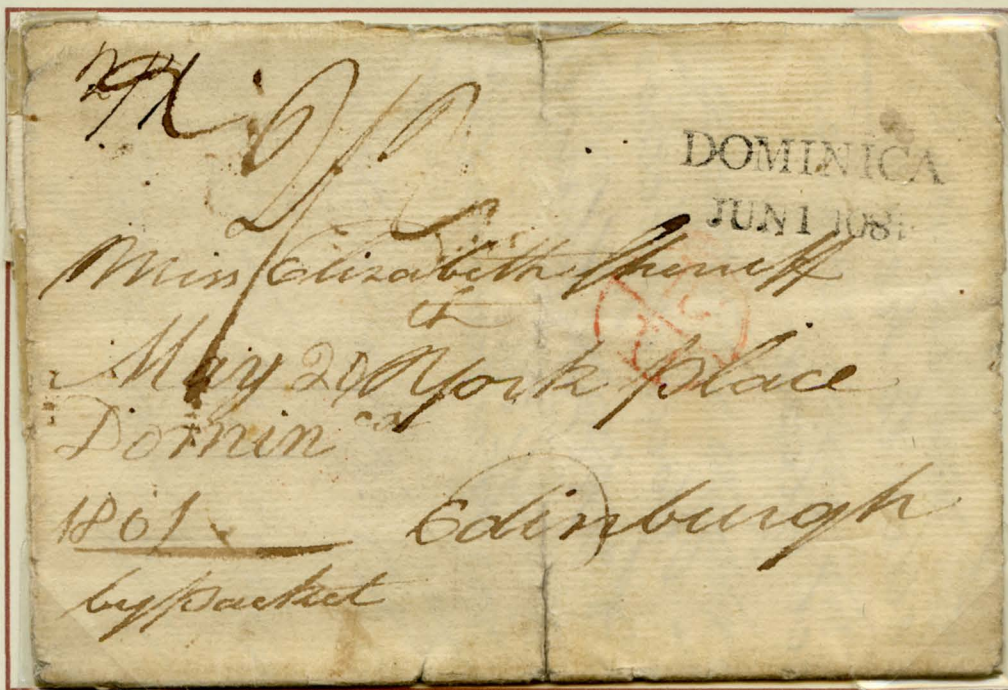 DOMINICA
JUN 1 1081
Miss Elizabeth Shirreff
May 20 York Place
Dominca
1801
Edinburgh
by packet